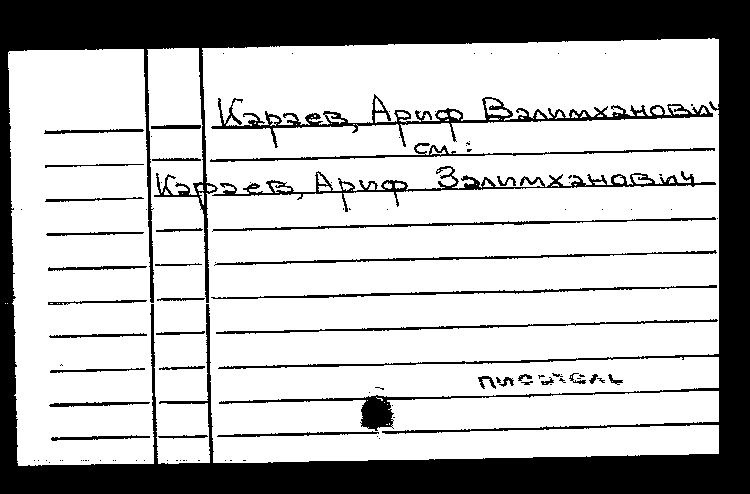 Караев, Ариф Валимханович
см.:
Караев, Ариф Залимханович
писатель